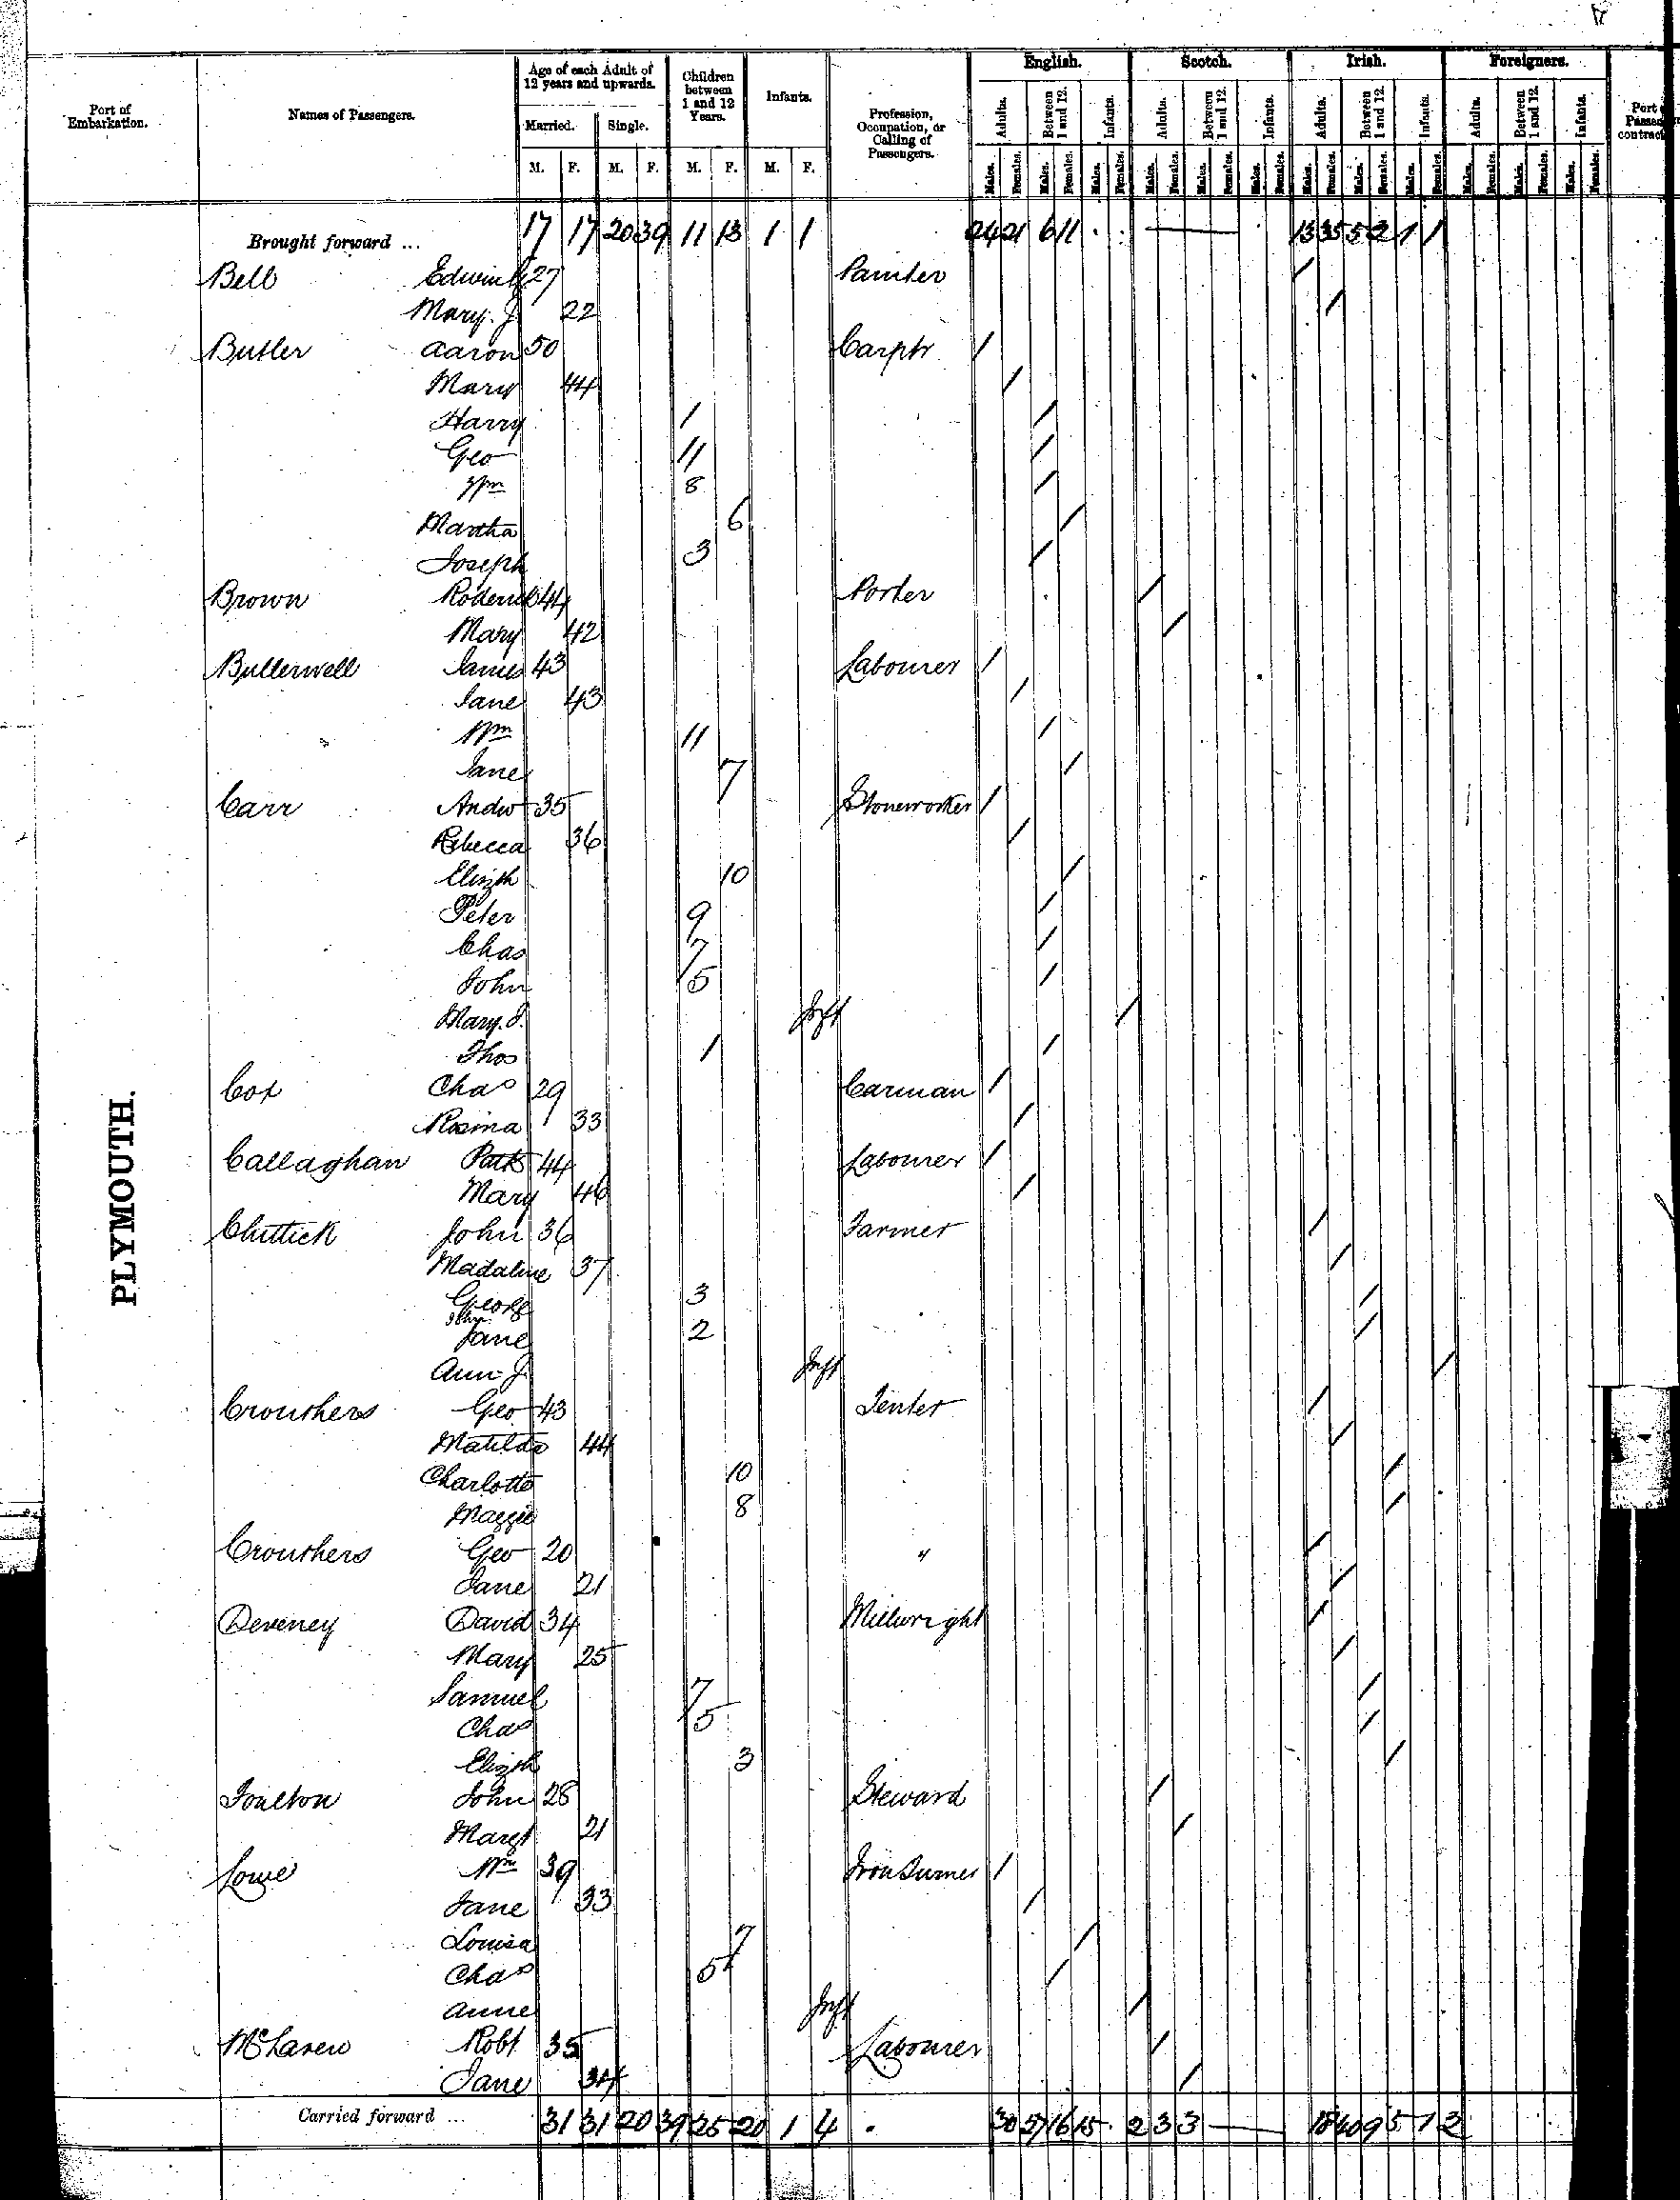 Port of Embarkation. Names of Passengers. Age of each Adult of 12 years and upwards. Married. Single. M. F. M. F. Children between 1 and 12 Years. M. F. Infants. M. F. Profession, Occupation, or Calling of Passengers. English. Scotch. Irish. Foreigners. Adults. Between 1 and 12. Infants. Males. Females. Port Passen contract
Brought forward ... 17 17 20 39 11 13 1 1 24 21 6 11 . . — 13 35 5 2 1 1
Bell Edwin 27 Painter /
Mary. J 22 /
Butler Aaron 50 Carptr /
Mary 44 /
Harry 1 /
Geo 11 /
Wm 8 /
Martha 6 /
Joseph 3 /
Brown Roderick 44 Porter /
Mary 42 /
Bullerwell James 43 Labourer /
Jane 43 /
Wm 11 /
Jane 7 /
Carr Andw 35 Stoneworker /
Rebecca 36 /
Elizth 10 /
Peter 9 /
Chas 7 /
John 5 /
Mary. J. Inft /
Thos 1 /
Cox Chas 29 Carman /
Rosina 33 /
Callaghan Patk 44 Labourer /
Mary 46 /
Chittick John 36 Farmer /
Madaline 37 /
George 3 /
John
Jane 2 /
Ann J Inft /
Crouthers Geo 43 Tenter /
Matilda 44 /
Charlotte 10 /
Maggie 8 /
Crouthers Geo 20 " /
Jane 21 /
PLYMOUTH.
Deveney David 34 Millwright /
Mary 25 /
Samuel 7 /
Chas 5 /
Elizth 3 /
Foulton John 28 Steward /
Margt 21 /
Lowe Wm 39 Iron Turner /
Jane 33 /
Louisa 7 /
Chas 5 /
Anne Inft /
McLaren Robt 35 Labourer /
Jane 34 /
Carried forward ... 31 31 20 39 25 20 1 4 . 30 27 16 15 . 2 3 3 — 18 40 9 5 1 2